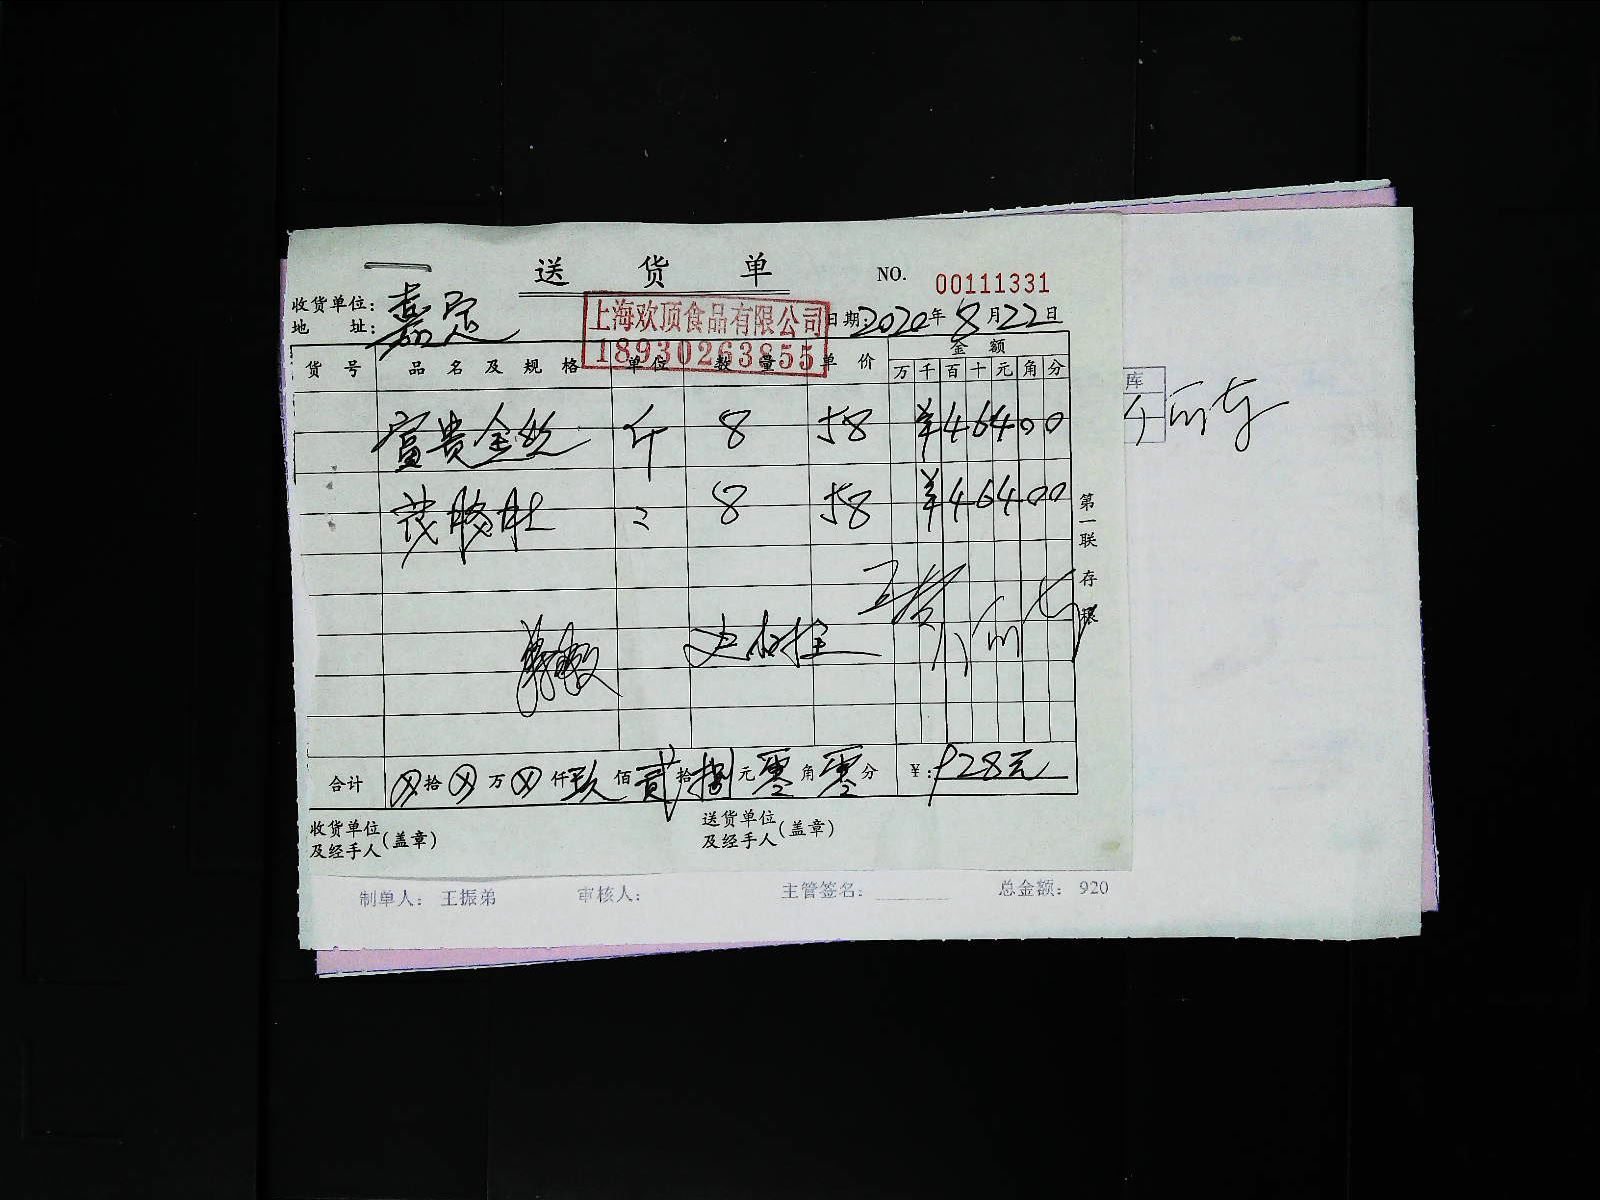 送货单
NO. 00111331
收货单位: 嘉定
地 址:
上海欢顶食品有限公司
18930263855
日期: 2020年8月22日
货号 品名及规格 单位 数量 单价 金额
万 千 百 十 元 角 分
富贵金丝 斤 8 58 ¥46400
茂胗肚 〃 8 58 ¥46400
库
第一联 存根
合计 ⊗拾⊗万⊗仟玖佰贰拾捌元零角零分 ¥: 928元
收货单位
及经手人(盖章)
送货单位
及经手人(盖章)
制单人: 王振弟 审核人: 主管签名: 总金额: 920